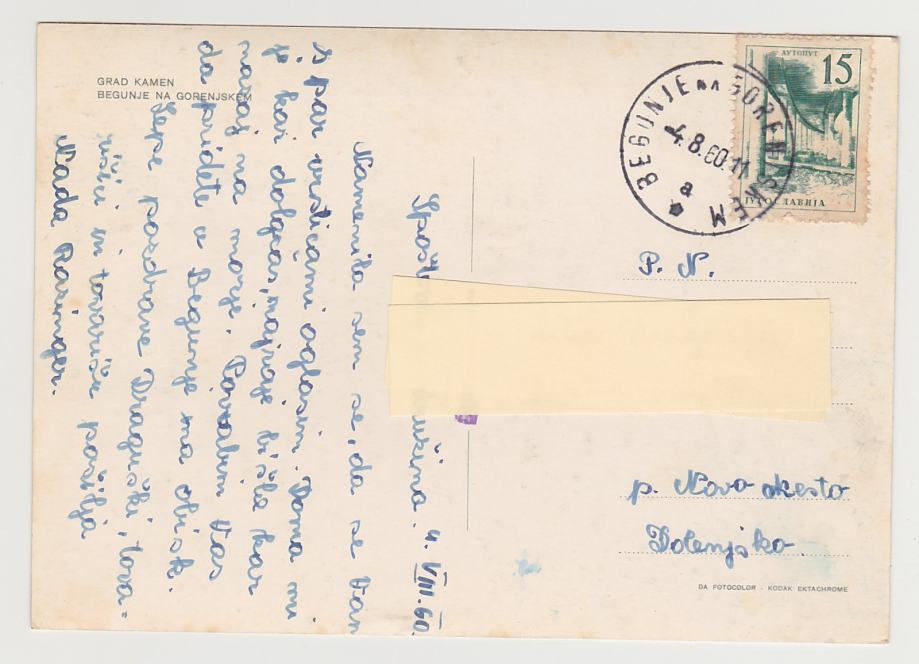 GRAD KAMEN
BEGUNJE NA GORENJSKEM
4. VIII. 60.
Namenila sem se, da se Vam
s par vrsticami oglasim. Doma mi
je kar dolgčas, najraje bi šla kar
nazaj na morje. Povabim Vas
da pridete v Begunje na obisk.
Lepe pozdrave Draguški, tova=
rišici in tovarišu pošilja
Nada Rasinger.
АУТОПУТ
15
ЈУГОСЛАВИЈА
BEGUNJE NA GORENJSKEM
4.8.60.11
a
P. N.
p. Novo Mesto
Dolenjsko
DA FOTOCOLOR - KODAK EKTACHROME